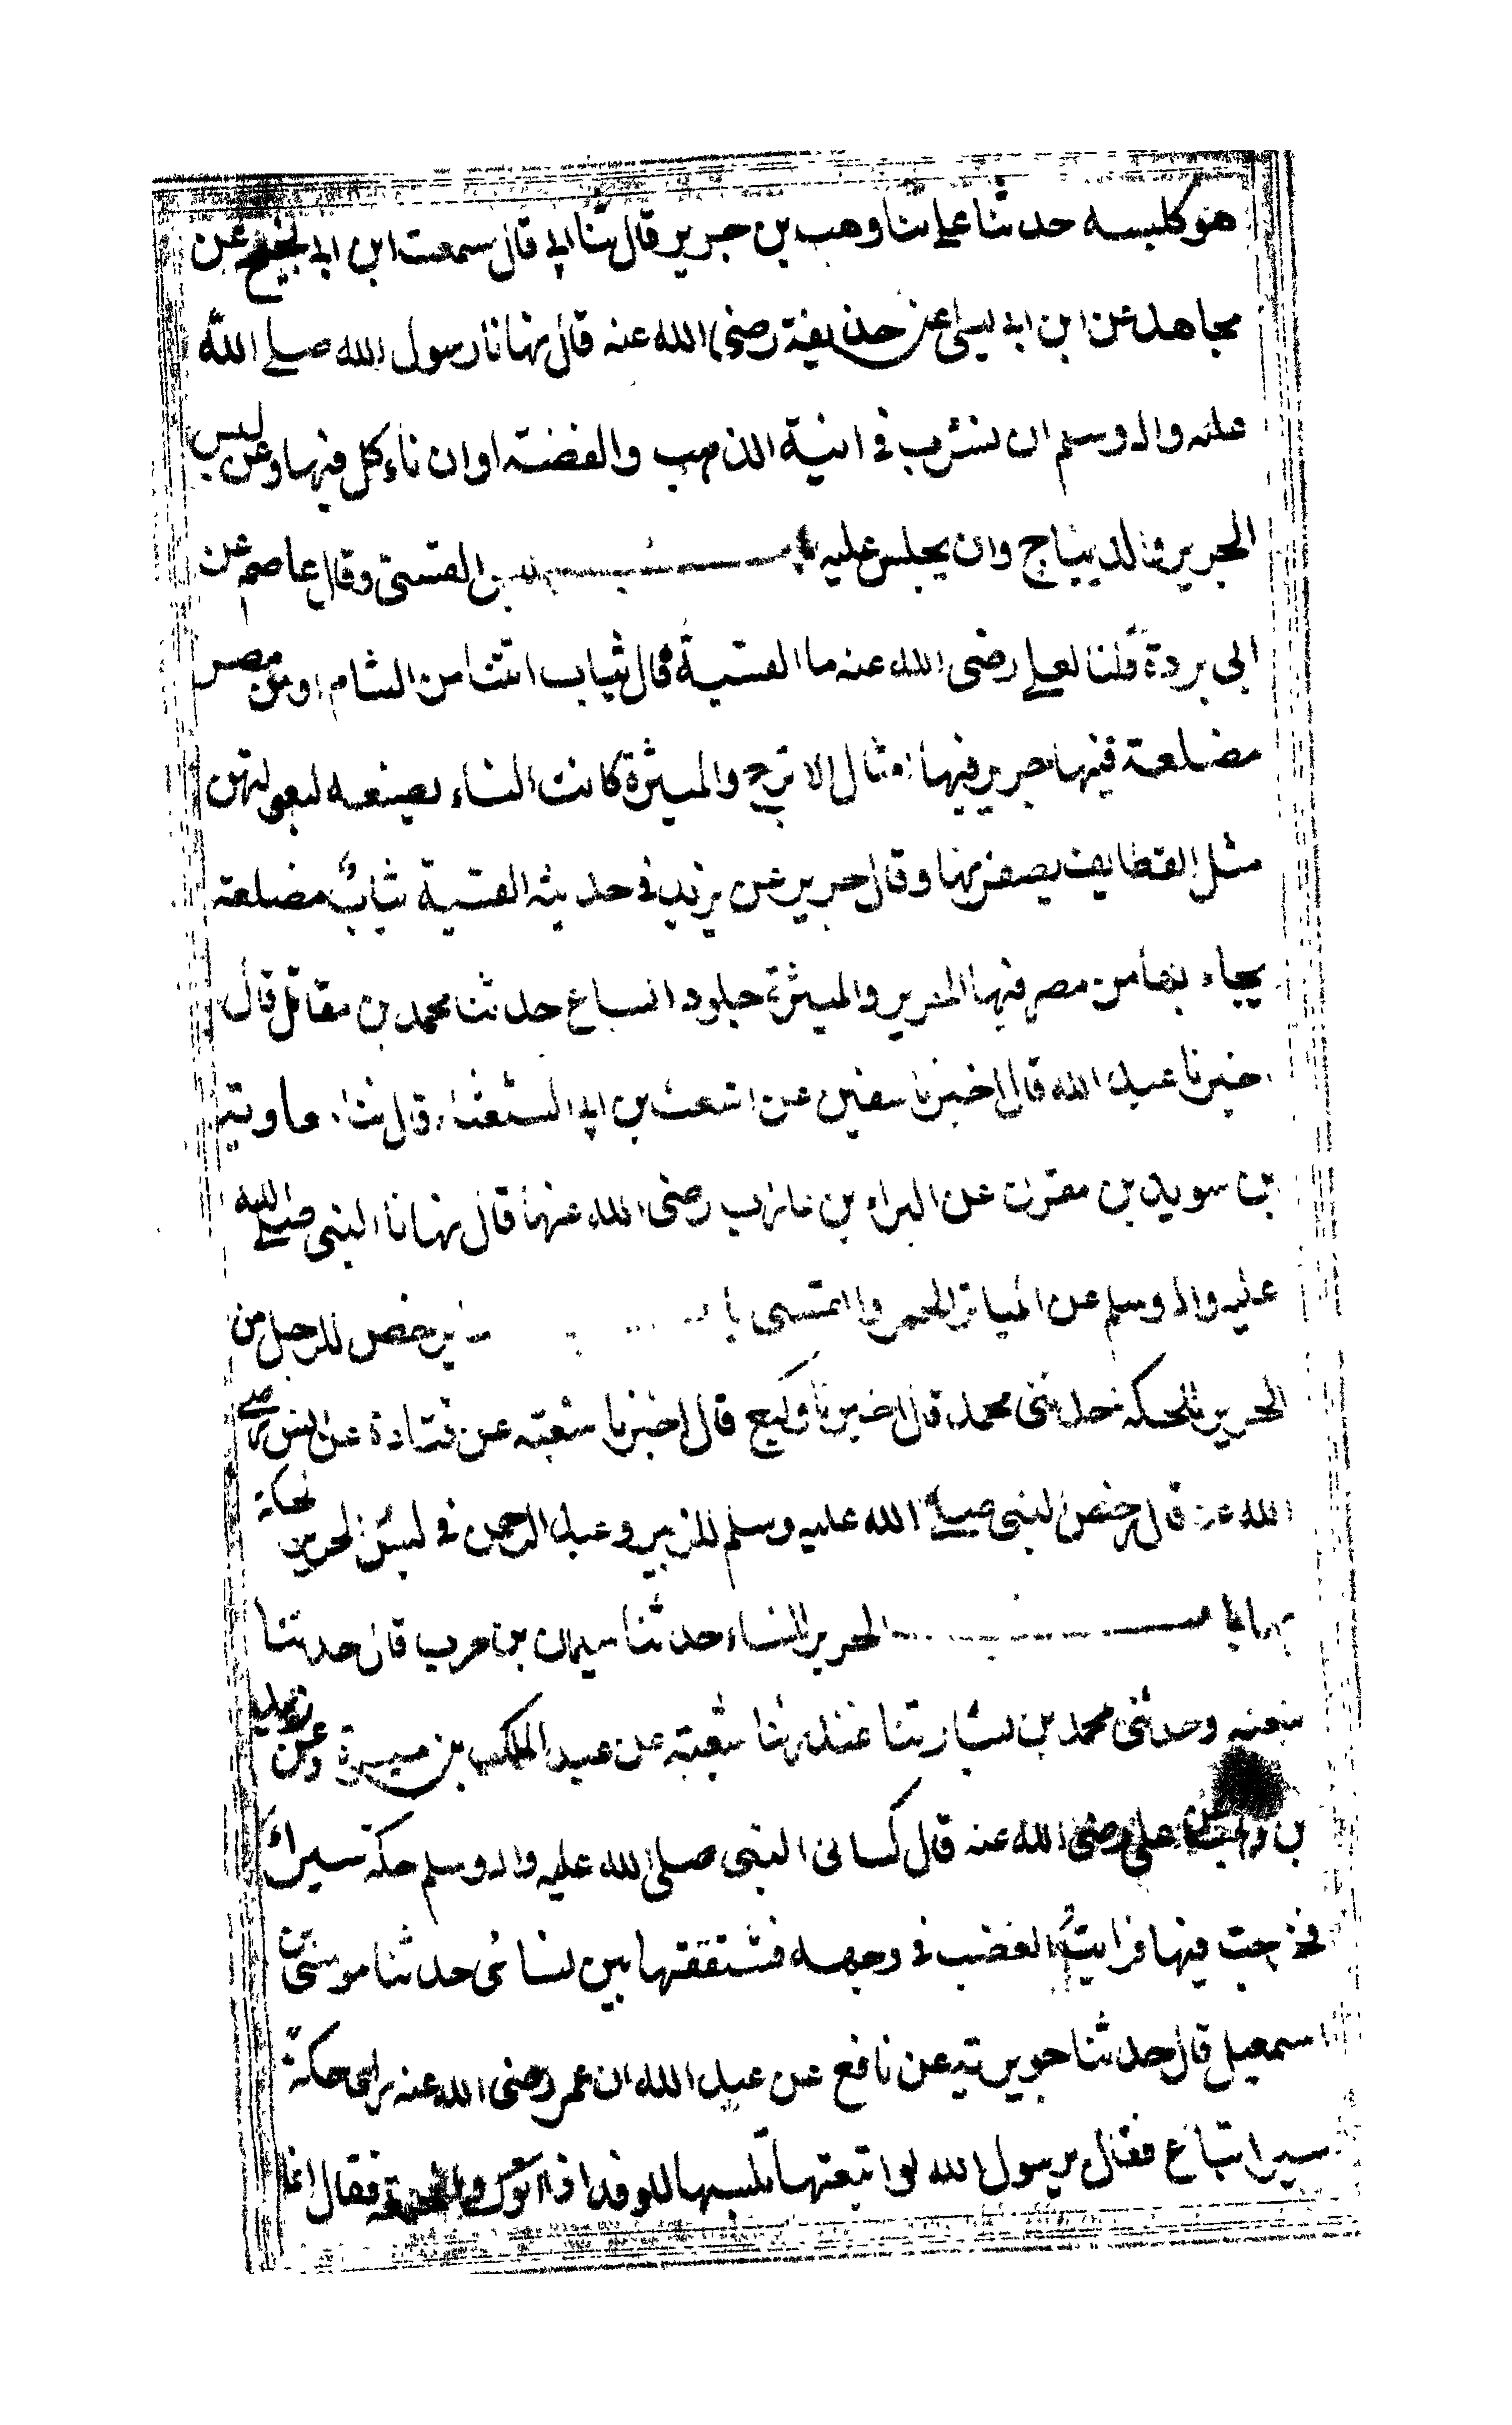 هو كلبسه حدثنا علي ثنا وهب بن جرير قال ثنا ابي قال سمعت ابن ابي نجيح عن
مجاهد عن ابن ابي ليلى عن حذيفة رضي الله عنه قال نهانا رسول الله صلى الله
عليه واله وسلم ان نشرب في انية الذهب والفضة او ان ناءكل فيها وعن لبس
الحرير والديباج وان يجلس عليه باب لبس القسي وقال عاصم عن
ابي بردة قلنا لعلي رضي الله عنه ما القسية قال ثياب اتتنا من الشام او من مصر
مضلعة فيها حرير فيها امثال الاترج والميثرة كانت النساء يصنعه لبعولتهن
مثل القطايف يصفونها وقال جرير عن يزيد في حديثه القسية ثياب مضلعة
يجاء بها من مصر فيها الحرير والميثرة جلود السباع حدثنا محمد بن مقاتل قال
اخبرنا عبد الله قال اخبرنا سفين عن اشعث بن ابي الشعثاء قال ثنا معاوية
بن سويد بن مقرن عن البراء بن عازب رضي الله عنهما قال نهانا النبي صلى الله
عليه واله وسلم عن المياثر الحمر والقسي با يرخص للرجل من
الحرير للحكة حدثني محمد قال اخبرنا وكيع قال اخبرنا شعبة عن قتادة عن انس رضي
الله عنه قال رخص النبي صلى الله عليه وسلم للزبير وعبد الرحمن في لبس الحرير لحكة
بهما باب الحرير للنساء حدثنا سليمان بن حرب قال حدثنا
شعبة وحدثني محمد بن بشار ثنا غندر ثنا شعبة عن عبد الملك بن ميسرة عن زيد
بن وهب عن علي رضي الله عنه قال كساني النبي صلى الله عليه واله وسلم حلة سيراء
فخرجت فيها فرايت الغضب في وجهه فشققتها بين نسائي حدثنا موسى بن
اسمعيل قال حدثنا جويرية عن نافع عن عبد الله ان عمر رضي الله عنه راى حلة
سيرا تباع فقال يرسول الله لو ابتعتها تلبسها للوفد اذا اتوك والجمعة فقال انما